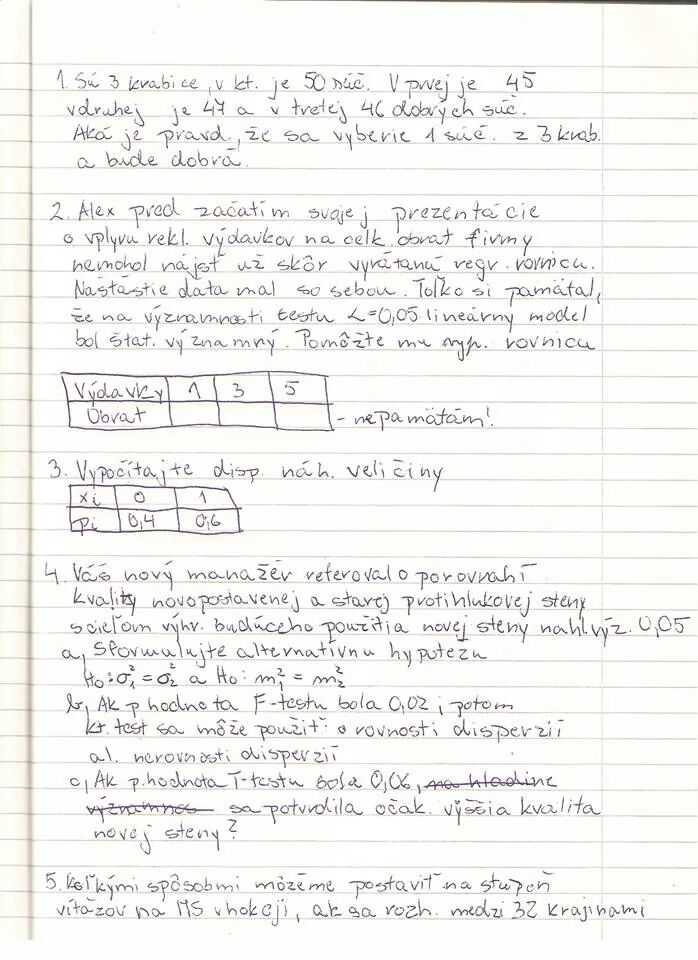 1. Sú 3 krabice, v kt. je 50 súč. V prvej je 45
v druhej je 47 a v tretej 46 dobrých súč.
Aká je pravd., že sa vyberie 1 súč. z 3 krab.
a bude dobrá.
2. Alex pred začatím svojej prezentácie
o vplyvu rekl. výdavkov na celk. obrat firmy
nemohol nájsť už skôr vyrátanú regr. rovnicu.
Našťastie data mal so sebou. Toľko si pamätal,
že na významnosti testu α=0,05 lineárny model
bol štat. významný. Pomôžte mu vyp. rovnicu
Výdavky 1 3 5
Obrat - nepamätám!
3. Vypočítajte disp. náh. veličiny
xi 0 1
pi 0,4 0,6
4. Váš nový manažér referoval o porovnaní
kvality novopostavenej a starej protihlukovej steny
s cieľom výhr. budúceho použitia novej steny na hl. výz. 0,05
a, Sformulujte alternatívnu hypotézu
Ho: σ₁² = σ₂² a Ho: m₁² = m₂²
b, Ak p hodnota F-testu bola 0,02, potom
kt. test sa môže použiť: o rovnosti disperzií
al. nerovnosti disperzií
c, Ak p.hodnota T-testu bola 0,06, na hladine
významnos sa potvrdila očak. vyššia kvalita
novej steny?
5. Koľkými spôsobmi môžeme postaviť na stupeň
víťazov na MS v hokeji, ak sa rozh. medzi 32 krajinami